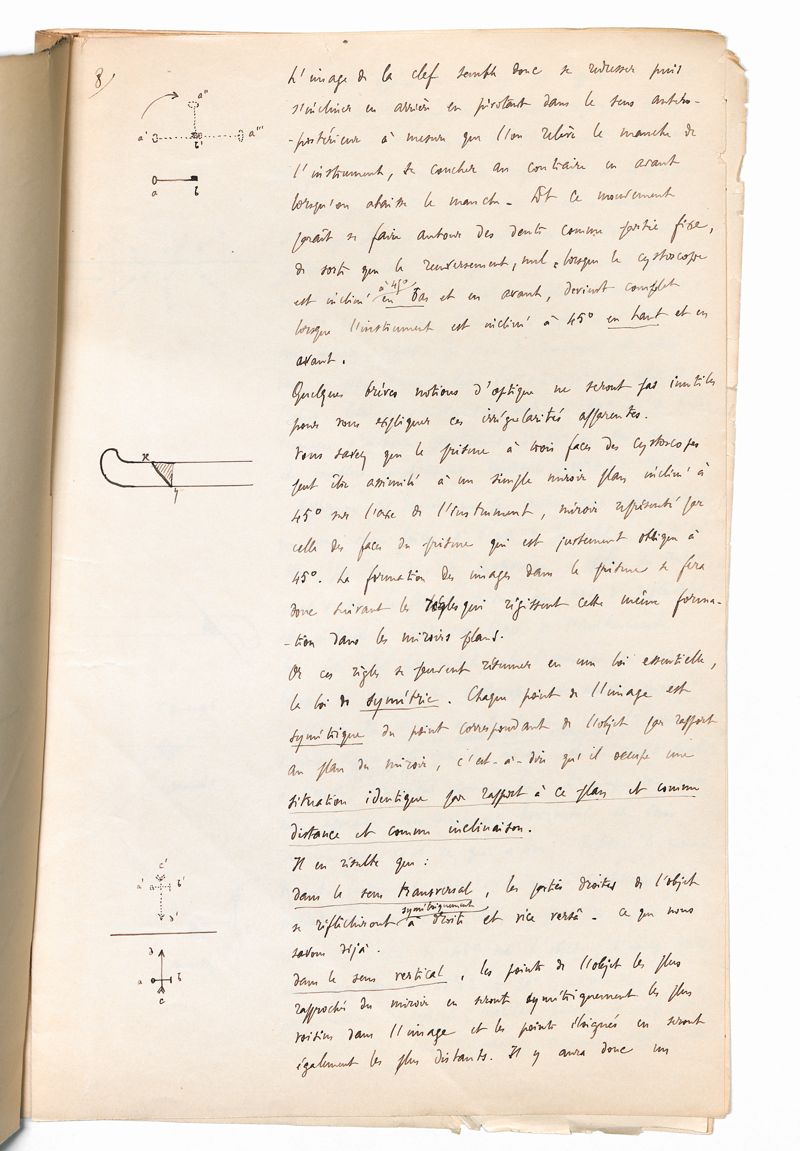 8/
L'image de la clef semble donc se redresser puis
s'incliner en arrière en pivotant dans le sens antéro-
-postérieur à mesure que l'on relève le manche de
l'instrument, se coucher au contraire en avant
lorsqu'on abaisse le manche - Et ce mouvement
paraît se faire autour des dents comme partie fixe,
de sorte que le renversement, nul, lorsque le cystoscope
à 45°
est incliné en bas et en avant, devient complet
lorsque l'instrument est incliné à 45° en haut et en
avant.
Quelques brèves notions d'optique ne seront pas inutiles
pour vous expliquer ces irrégularités apparentes.
Vous savez que le prisme à trois faces des cystoscopes
peut être assimilé à un simple miroir plan incliné à
45° sur l'axe de l'instrument, miroir représenté par
celle des faces du prisme qui est justement oblique à
45°. La formation des images dans le prisme se fera
donc suivant les règles qui régissent cette même forma-
-tion dans les miroirs plans.
Or ces règles se peuvent résumer en une loi essentielle,
la loi de symétrie. Chaque point de l'image est
symétrique du point correspondant de l'objet par rapport
au plan du miroir, c'est-à-dire qu'il occupe une
situation identique par rapport à ce plan et comme
distance et comme inclinaison.
Il en résulte que :
dans le sens transversal, les parties droites de l'objet
symétriquement
se réfléchiront à droite et vice versâ - ce que nous
savons déjà.
dans le sens vertical, les points de l'objet les plus
rapprochés du miroir en seront symétriquement les plus
voisins dans l'image et les points éloignés en seront
également les plus distants. Il y aura donc un
a'' a' b' a'''
a b
x
y
c'
a' b'
d'
d
a b
c